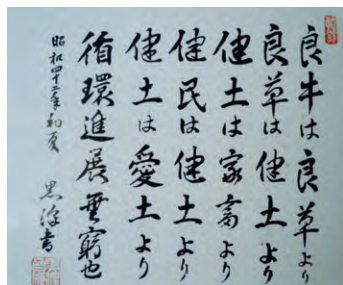 良牛は良草より
良草は健土より
健土は家畜より
健民は健土より
健土は愛土より
循環進展無窮也
昭和四十二年初夏
黒澤書